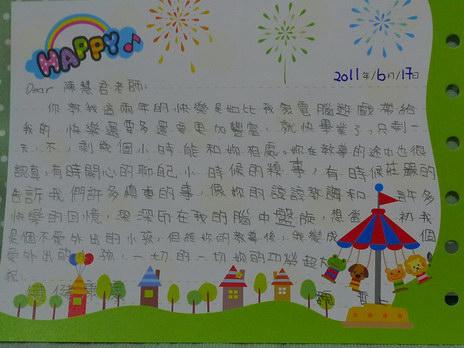 HAPPY
2011年6月17日
Dear 陳慧君老師:
你教我這兩年的快樂是如比我教電腦遊戲帶給
我的快樂還要多還要更加豐富,就快畢業了,只剩一
天,不,剩幾個小時能和妳相處。妳在教導的途中也很
認真,有時開心的聊起小時候的糗事,有時候莊嚴的
告訴我們許多模重的事,像妳的諄諄教誨和 許多
快樂的回憶,與深厚在我的腦中盤旋,想當 初我
是個不愛外出的小孩,但經妳的教導後,我變成 個
愛外出的 孩,一切的一切妳的功勞超
祝: